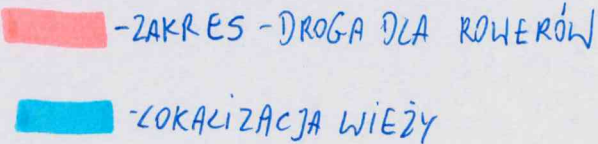 -ZAKRES - DROGA DLA ROWERÓW
-LOKALIZACJA WIEŻY